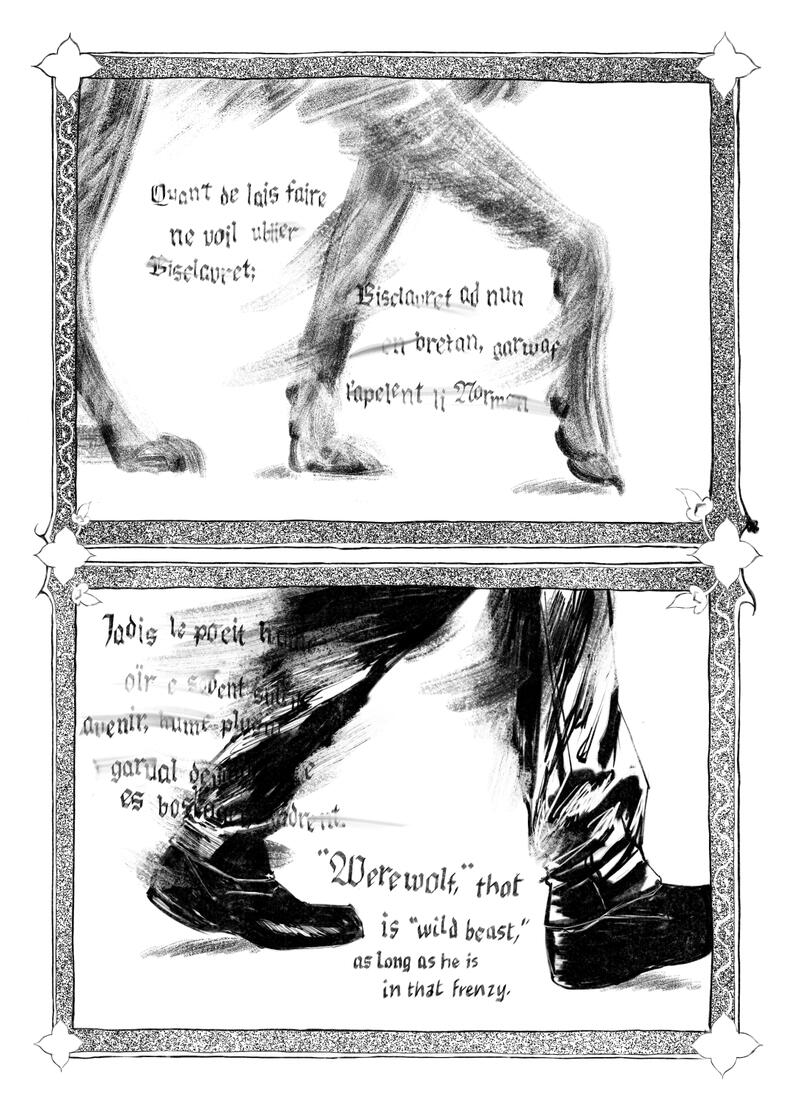 Quant de lais faire
ne voil ublier
Bisclavret;
Bisclavret ad nun
en bretan, garwaf
l'apelent li Norman
Jadis le poeit
oïr e
avenir, humes plusurs
garval
es boscages
"Werewolf," that
is "wild beast,"
as long as he is
in that frenzy.